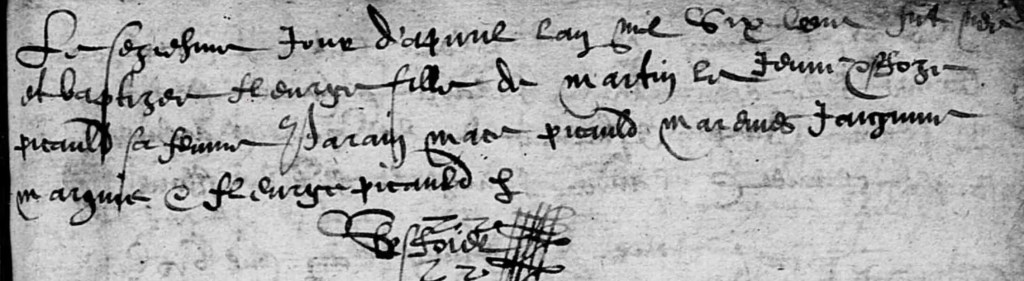 Le seziesme Jour d'apvril l'an mil Six cens fut née
et baptizee fleurge fille de martin le Jeune & Roze
picauld sa femme Parain mace picauld mareines Jacquine
margnie & fleurge picauld